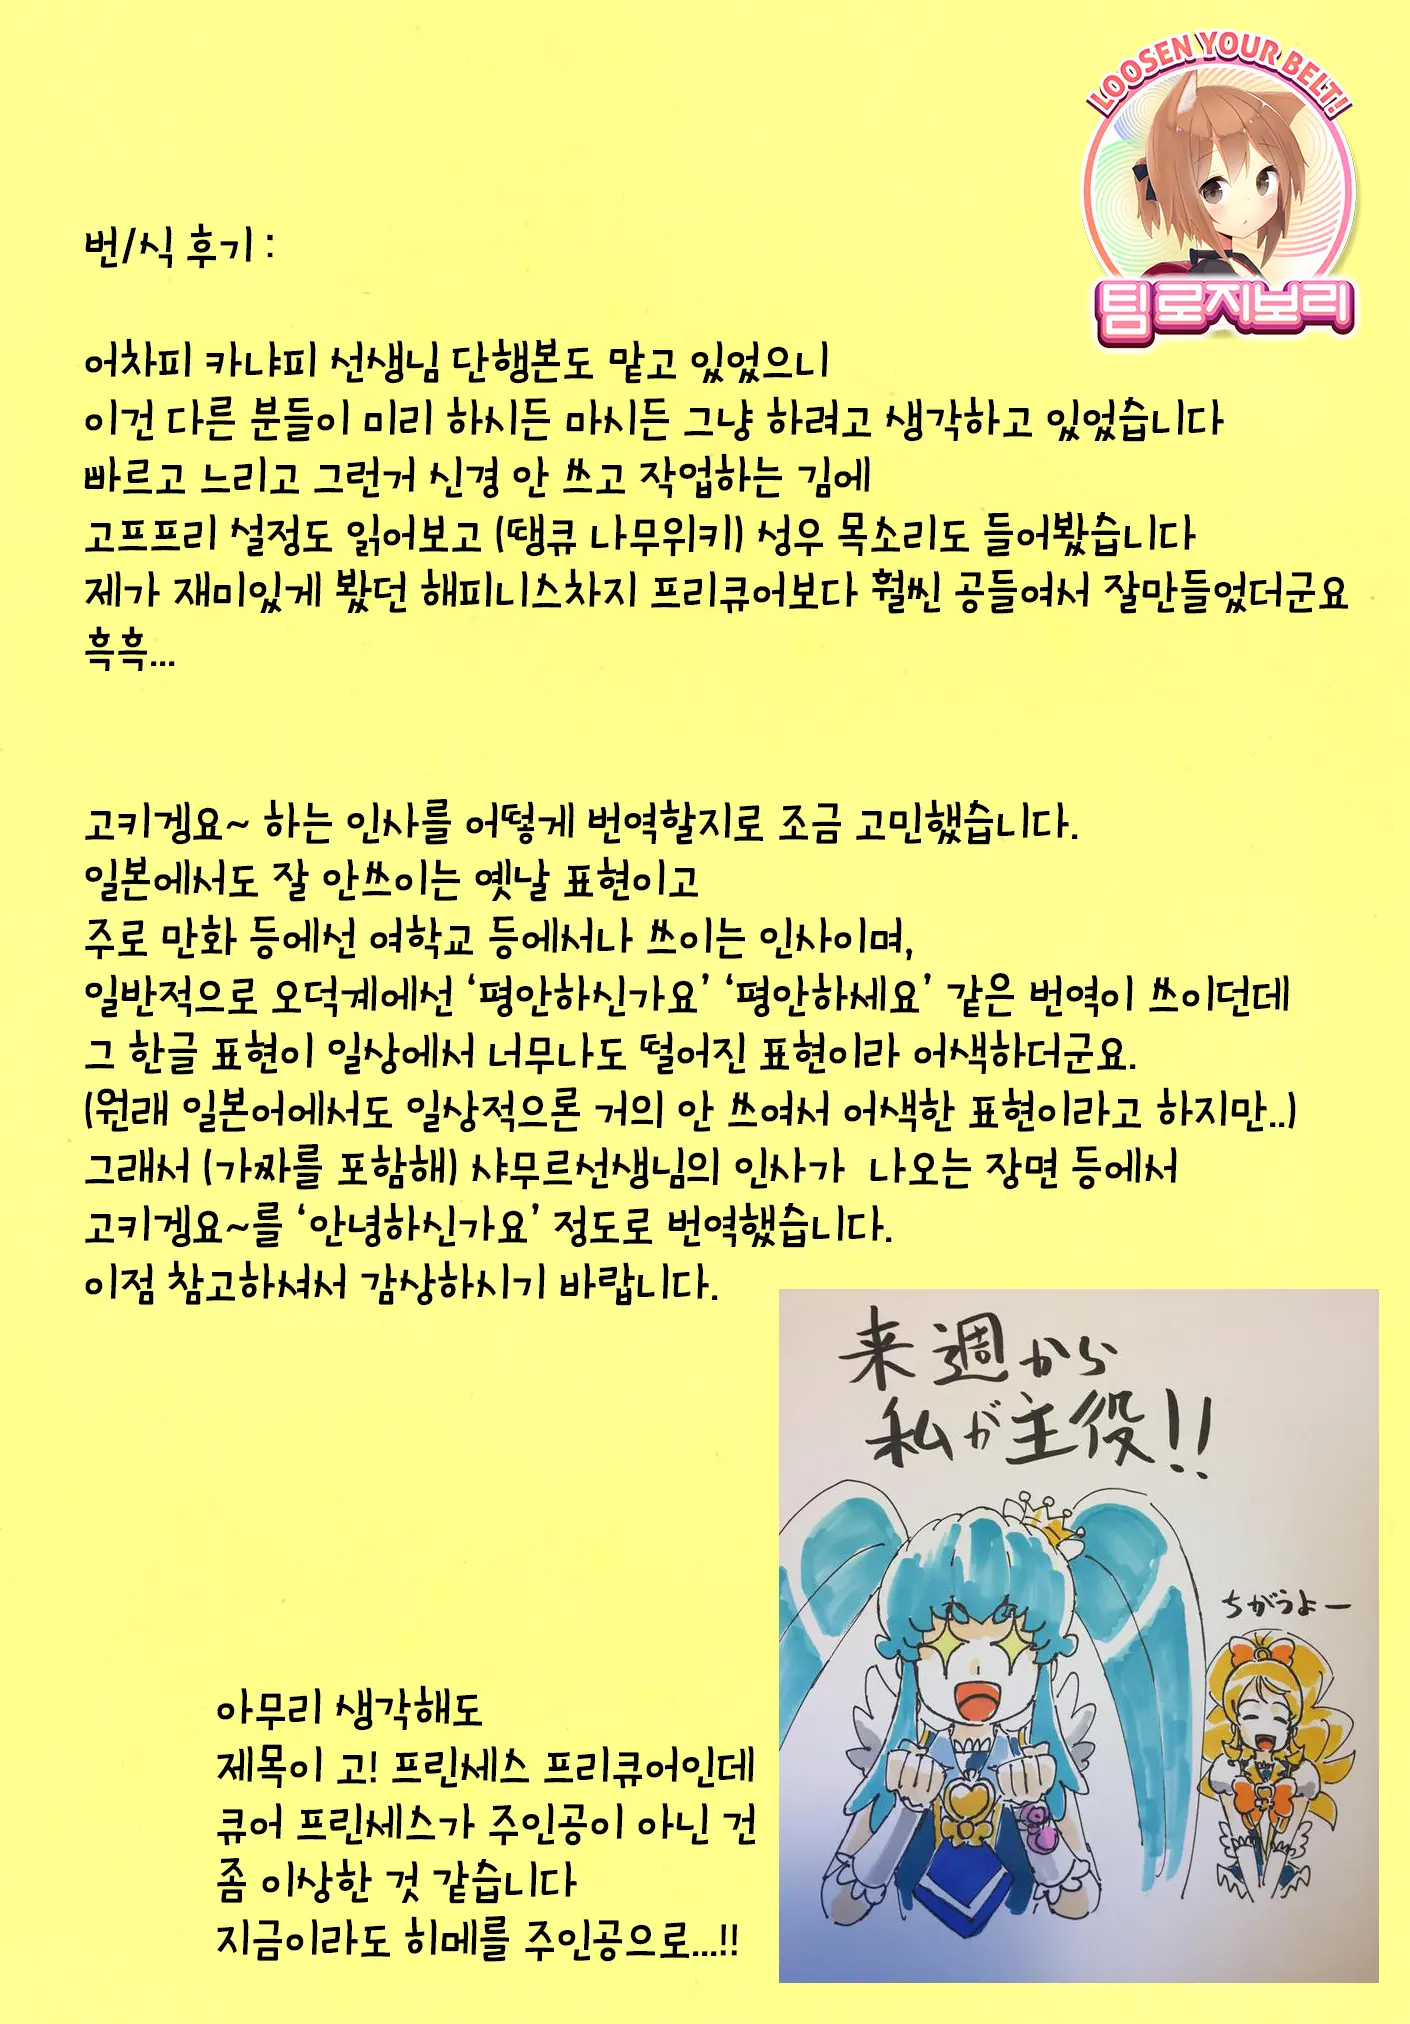 LOOSEN YOUR BELT!
팀 로지보리
번/식 후기 :
어차피 카냐피 선생님 단행본도 맡고 있었으니
이건 다른 분들이 미리 하시든 마시든 그냥 하려고 생각하고 있었습니다
빠르고 느리고 그런거 신경 안 쓰고 작업하는 김에
고프프리 설정도 읽어보고 (땡큐 나무위키) 성우 목소리도 들어봤습니다
제가 재미있게 봤던 해피니스차지 프리큐어보다 훨씬 공들여서 잘만들었더군요
흑흑...
고키겡요~ 하는 인사를 어떻게 번역할지로 조금 고민했습니다.
일본에서도 잘 안쓰이는 옛날 표현이고
주로 만화 등에선 여학교 등에서나 쓰이는 인사이며,
일반적으로 오덕계에선 ‘평안하신가요’ ‘평안하세요’ 같은 번역이 쓰이던데
그 한글 표현이 일상에서 너무나도 떨어진 표현이라 어색하더군요.
(원래 일본어에서도 일상적으론 거의 안 쓰여서 어색한 표현이라고 하지만..)
그래서 (가짜를 포함해) 샤무르선생님의 인사가 나오는 장면 등에서
고키겡요~를 ‘안녕하신가요’ 정도로 번역했습니다.
이점 참고하셔서 감상하시기 바랍니다.
来週から
私が主役!!
ちがうよー
아무리 생각해도
제목이 고! 프린세스 프리큐어인데
큐어 프린세스가 주인공이 아닌 건
좀 이상한 것 같습니다
지금이라도 히메를 주인공으로...!!